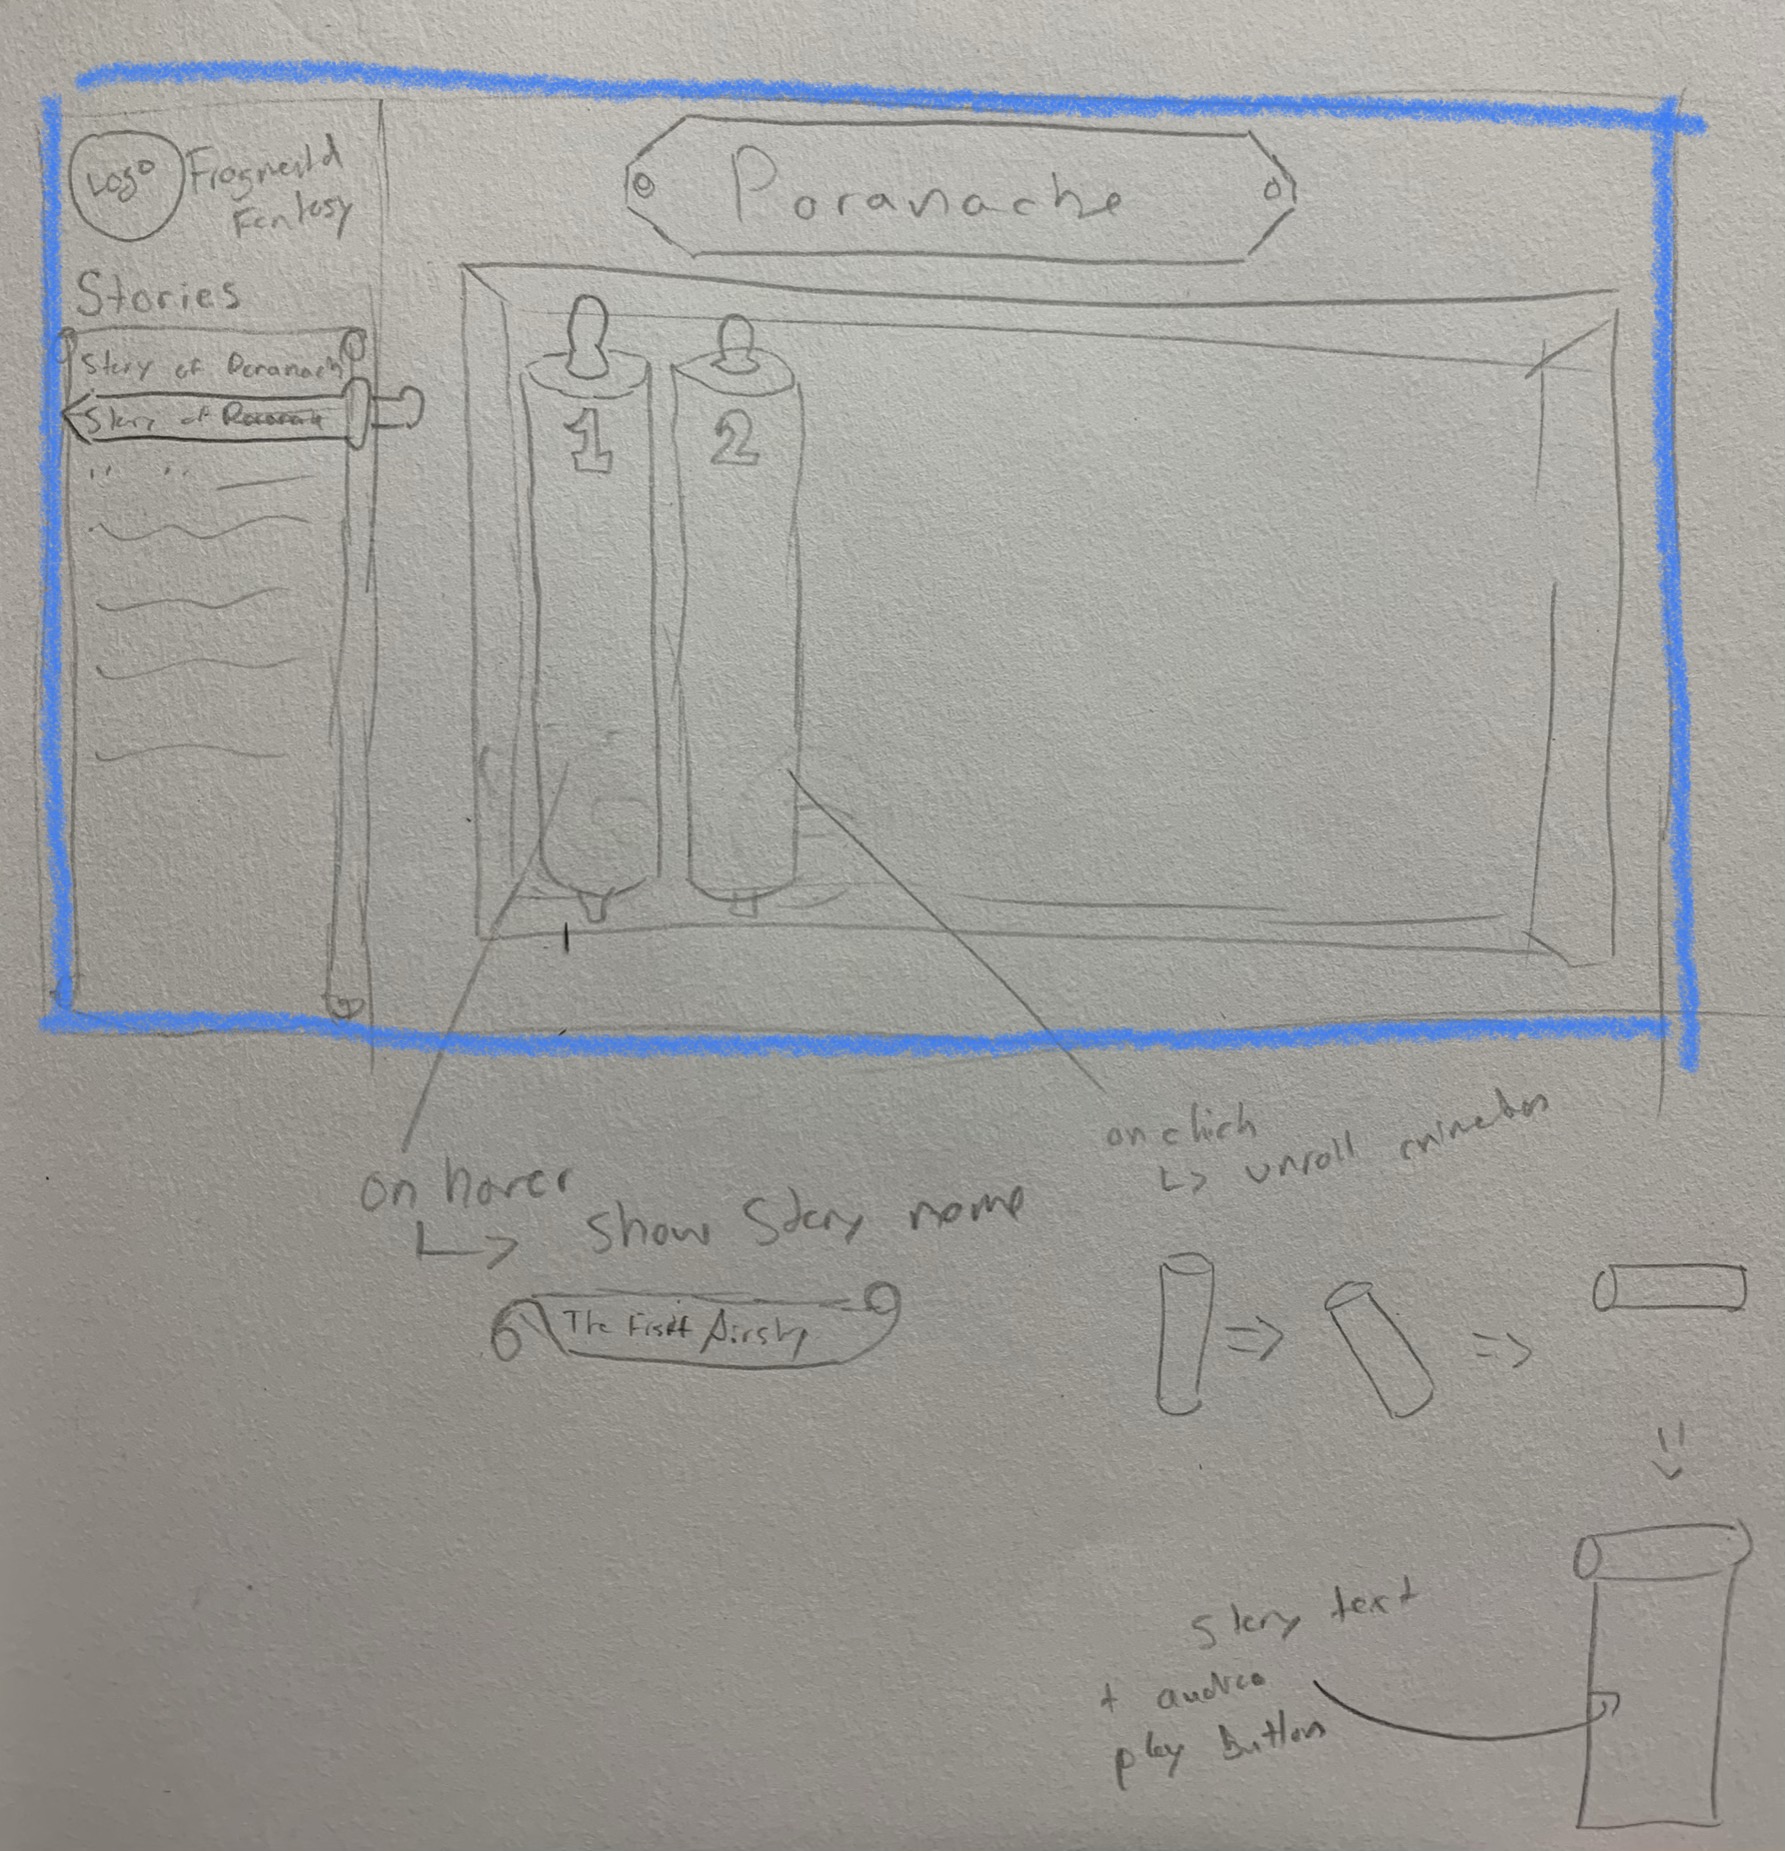 Logo
Fragmentd
Fantasy
Poranache
Stories
Story of Poranach
Story of
1
2
on hover
↳ show Story name
The First Airship
on click
↳ unroll animation
Story text
+ audio
play Button